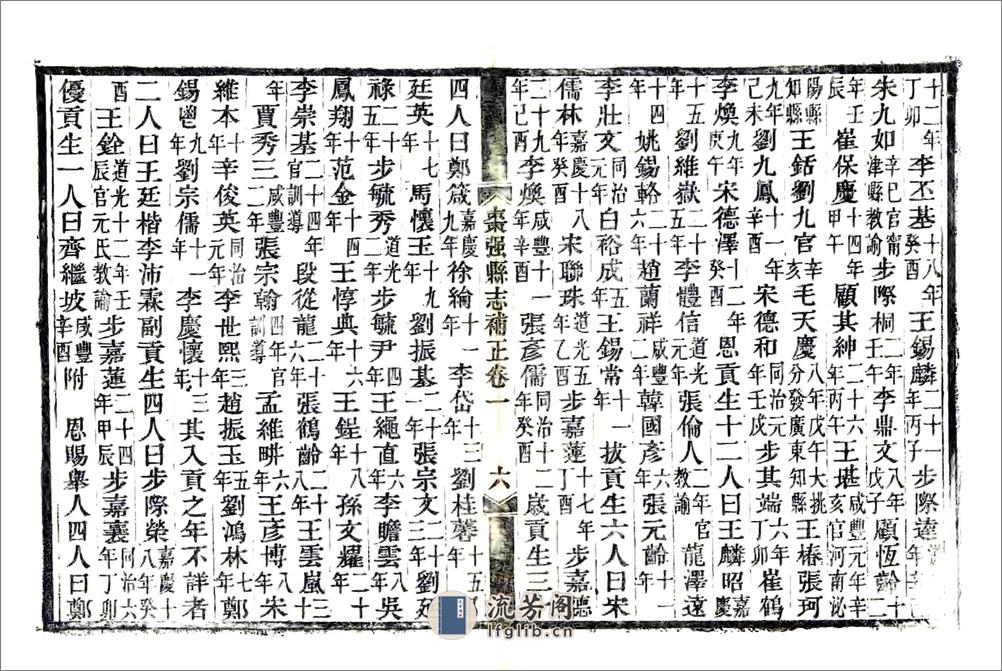 十二年丁卯李丕基十八年癸酉王錫麟二十一年丙子步際達年辛
朱九如辛巳官甯津縣教諭步際桐二年壬午李鼎文八年戊子顧恆齡十二
年壬辰崔保慶十四年甲午顧其紳二十六年丙午王堪咸豐元年辛亥官河南泌
陽縣知縣王銛劉九官辛亥毛天慶八年戊午大挑分發廣東知縣王椿張珂
九年己未劉九鳳十一年辛酉宋德和同治元年壬戌步其端六年丁卯崔鶴
李煥九年庚午宋德澤十二年癸酉恩貢生十二人曰王麟昭嘉慶
十五年劉維嶽二十五年李體信道光元年張倫人二年官教諭龍澤遠
十四年姚錫輅二十六年趙蘭祥咸豐二年韓國彥六年張元齡十一年
李壯文同治元年白裕成五年王錫常十一年拔貢生六人曰宋
儒林嘉慶十八年癸酉宋聯珠道光五年乙酉步嘉蓮十七年丁酉步嘉德
二十九年己酉李煥咸豐十一年辛酉張彥儒同治十二年癸酉歲貢生三
棗强縣志補正卷一 六
四人曰鄭箴嘉慶九年徐綸十一年李岱十三年劉桂蓉十五
廷英十七年馬懷玉十九年劉振基二十一年張宗文二十三年劉苑
祿二十五年步毓秀道光二年步毓尹四年王繩直六年李瞻雲八年吳
鳳翔十年范金十四年王惇典十六年王鋥十八年孫文耀二十年
李崇基二十四年官訓導段從龍二十六年張鶴齡二十八年王雲嵐三十
年賈秀三咸豐二年張宗翰四年官訓導孟維畊六年王彥博八年宋
維本十年辛俊英同治元年李世熙三年趙振玉五年劉鴻林七年鄭
錫鬯九年劉宗儒十一年李慶懷十三年其入貢之年不詳者
二人曰王廷楷李沛霖副貢生四人曰步際榮嘉慶十八年癸
酉王銓道光十二年壬辰官元氏教諭步嘉蓮二十四年甲辰步嘉襄同治六年丁卯
優貢生一人曰齊繼坡咸豐辛酉附 恩賜舉人四人曰鄭
流芳閣
lfglib.cn